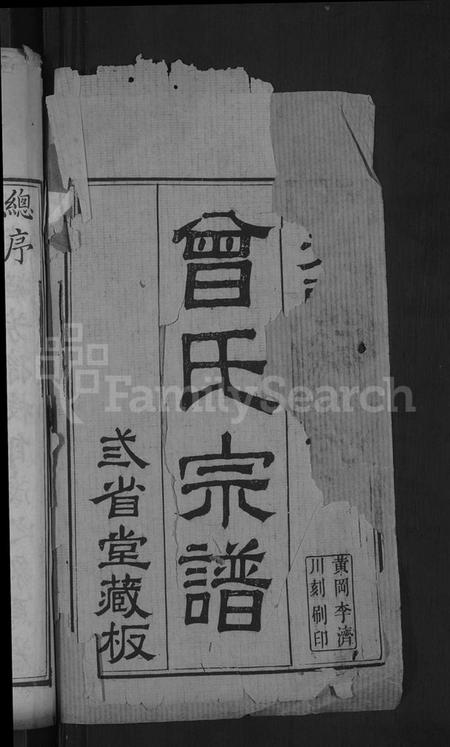 曾氏宗譜
弎省堂藏板
黃岡李濟
川刻刷印
總序
FamilySearch